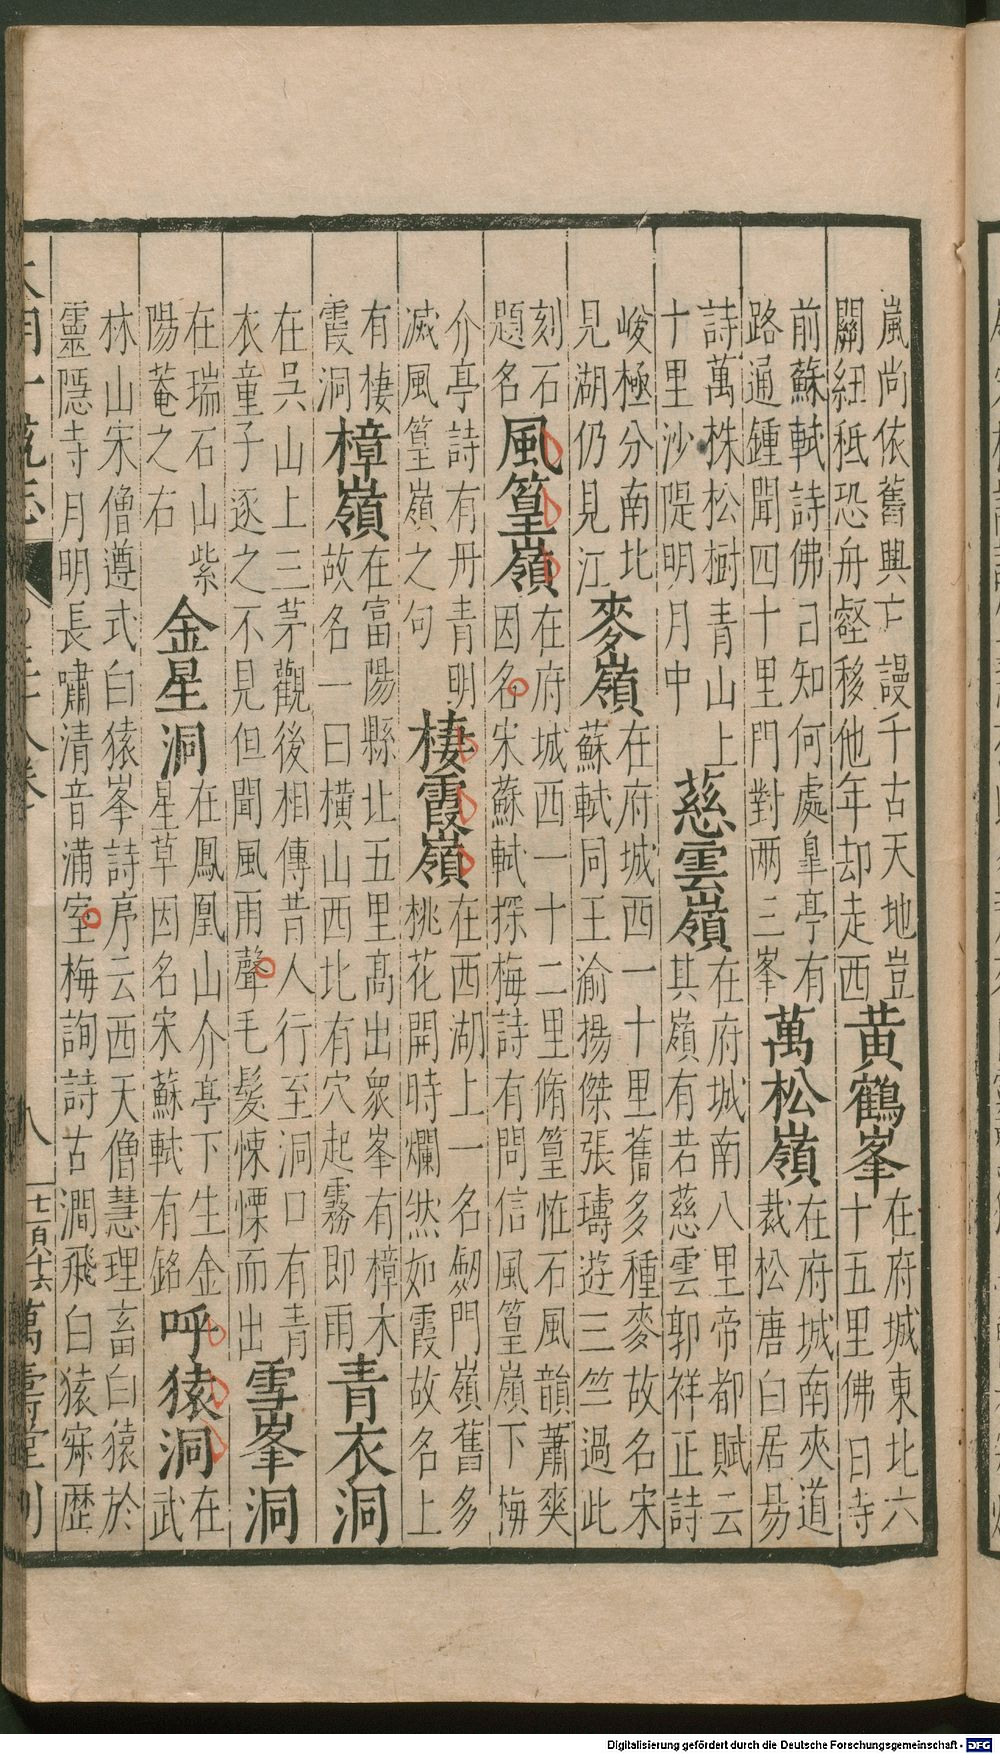 嵐尚依舊興亡謾千古天地豈
關紐秪恐舟壑移他年却走西
黃鶴峯
在府城東北六
十五里佛日寺
前蘇軾詩佛日知何處臯亭有
路通鍾聞四十里門對兩三峯
萬松嶺
在府城南夾道
裁松唐白居昜
詩萬株松樹青山上
十里沙隄明月中
慈雲嶺
在府城南八里帝都賦云
其嶺有若慈雲郭祥正詩
峻極分南北
見湖仍見江
麥嶺
在府城西一十里舊多種麥故名宋
蘇軾同王渝揚傑張璹遊三竺過此
刻石
題名
風篁嶺
在府城西一十二里脩篁恠石風韻蕭爽
因名宋蘇軾探梅詩有問信風篁嶺下梅
介亭詩有丹青明
滅風篁嶺之句
棲霞嶺
在西湖上一名劒門嶺舊多
桃花開時爛然如霞故名上
有棲
霞洞
樟嶺
在富陽縣北五里髙出衆峯有樟木
故名一曰橫山西北有穴起霧即雨
青衣洞
在吳山上三茅觀後相傳昔人行至洞口有青
衣童子逐之不見但聞風雨聲毛髮悚慄而出
雪峯洞
在瑞石山紫
陽菴之右
金星洞
在鳳凰山介亭下生金
星草因名宋蘇軾有銘
呼猿洞
在武
林山宋僧遵式白猿峯詩序云西天僧慧理畜白猿於
靈隱寺月明長嘯清音滿室梅詢詩古澗飛白猿寐歴
大明一統志 三十八卷 八 七百八十六 萬壽堂刊
Digitalisierung gefördert durch die Deutsche Forschungsgemeinschaft - DFG